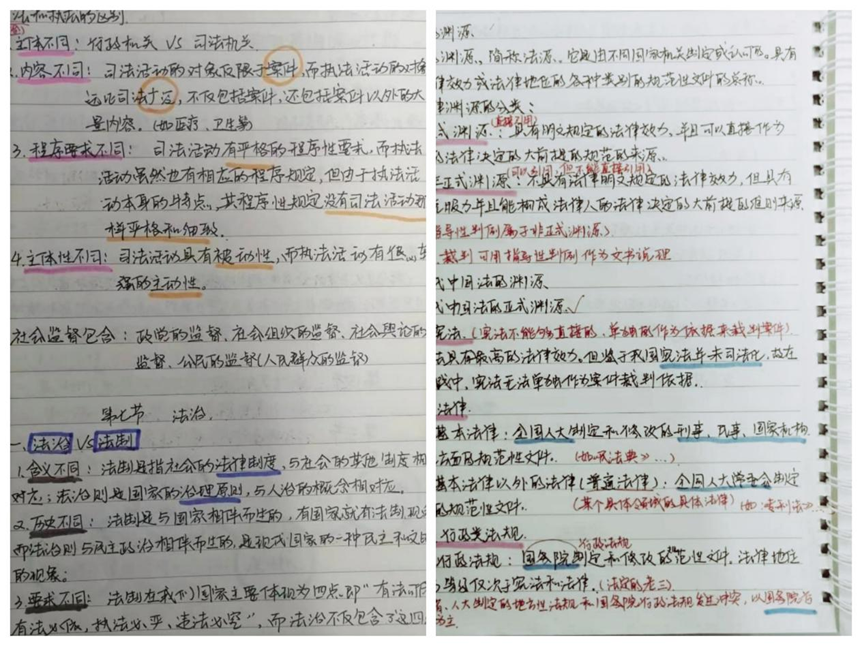 法和执法的区别.
主体不同: 行政机关 VS 司法机关.
内容不同: 司法活动的对象仅限于案件, 而执法活动的对象
远比司法广泛, 不仅包括案件, 还包括案件以外的大
量内容. (如医疗、卫生等)
3. 程序要求不同: 司法活动有严格的程序性要求, 而执法
活动虽然也有相应的程序规定, 但由于执法活
动本身的特点, 其程序性规定没有司法活动那
样严格和细致.
4. 主体性不同: 司法活动具有被动性, 而执法活动有很
强的主动性.
社会监督包含: 政党的监督、社会组织的监督、社会舆论的
监督、公民的监督(人民群众的监督)
第七节 法治.
一、法治 VS 法制
1. 含义不同: 法制是指社会的法律制度, 与社会的其他制度相
对应; 法治则是国家的治理原则, 与人治的概念相对应.
2. 历史不同: 法制是与国家相伴而生的, 有国家就有法制现
即法治则与民主政治相伴而生的, 是现代国家的一种民主和文
的现象;
3. 要求不同: 法制在我国主要体现为四点, 即"有法可依
有法必依, 执法必严, 违法必究", 而法治不仅包含了这四
渊源.
渊源, 简称法源. 它是由不同国家机关制定或认可的. 具有
律效力或法律地位的各种类别的规范性文件的总称.
律渊源的分类:
(直接引用)
式渊源: 具有明文规定的法律效力, 并且可以直接作为
法律决定的大前提的规范的来源.
(可以引用, 但不能直接引用)
正式渊源: 不具有法律明文规定的法律效力, 但具有
说服力并且能构成法律人的法律决定的大前提的准则来源
指导性判例属于非正式渊源)
裁判可用指导性判例作为文书说理
代中国法的渊源
代中国法的正式渊源 ✓
宪法. (宪法不能够直接的, 单独的作为依据来裁判案件)
法具有最高的法律效力, 但鉴于我国宪法并未司法化, 故在
践中, 宪法无法单独作为案件裁判依据.
法律.
基本法律: 全国人大制定和修改的刑事、民事、国家机构
方面的规范性文件. (如《民法典》...)
基本法律以外的法律(普通法律): 全国人大常委会制定
的规范性文件. (某个具体领域的具体法律)
行政类法规. 行政法规
行政法规: 国务院制定和修改的规范性文件. 法律地位
等级仅次于宪法和法律. (法定的老三)
人大制定的地方性法规和国务院行政法规发生冲突, 以国务院为
为主.